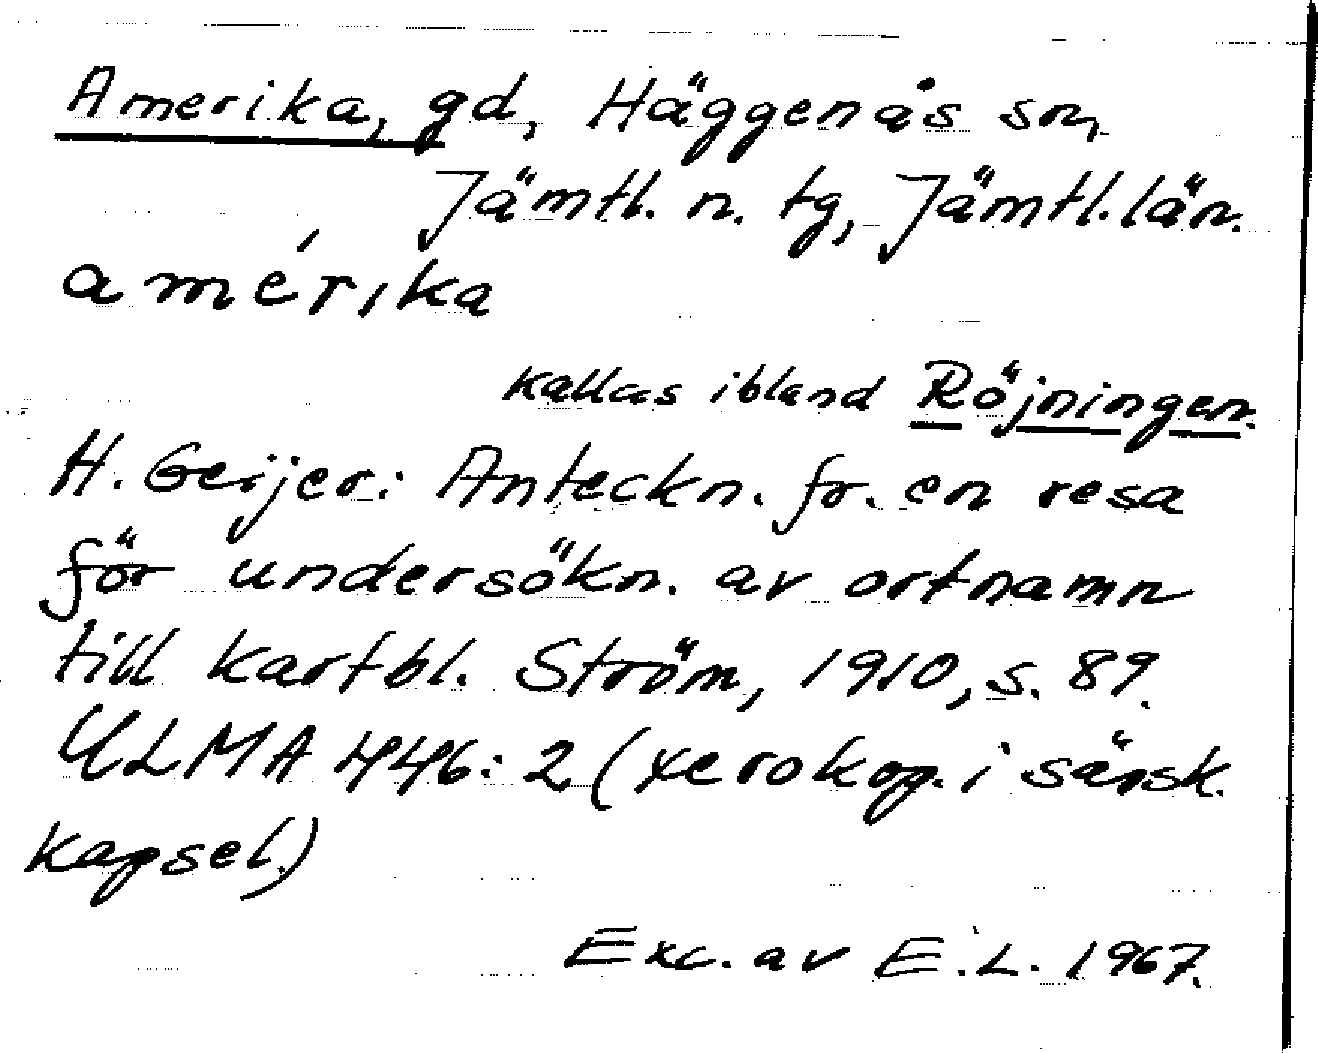 Amerika, gd, Häggenås sn,
Jämtl. n. tg, Jämtl. län.
amérika
kallas ibland Röjningen.
H. Geijer: Anteckn. fr. en resa
för undersökn. av ortnamn
till kartbl. Ström, 1910, s. 89.
ULMA 446:2 (xerokop. i särsk.
kapsel.)
Exc. av E.L. 1967.